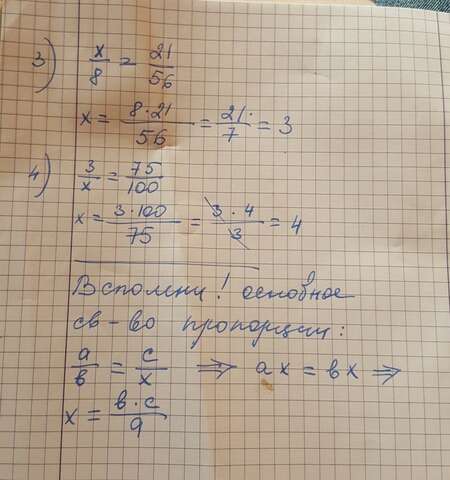 3) x/8 = 21/56
x = 8·21/56 = 21/7 = 3
4) 3/x = 75/100
x = 3·100/75 = 3·4/3 = 4
Вспомни! основное
св-во пропорции:
a/в = c/x ⇒ ax = вx ⇒
x = в·c/a